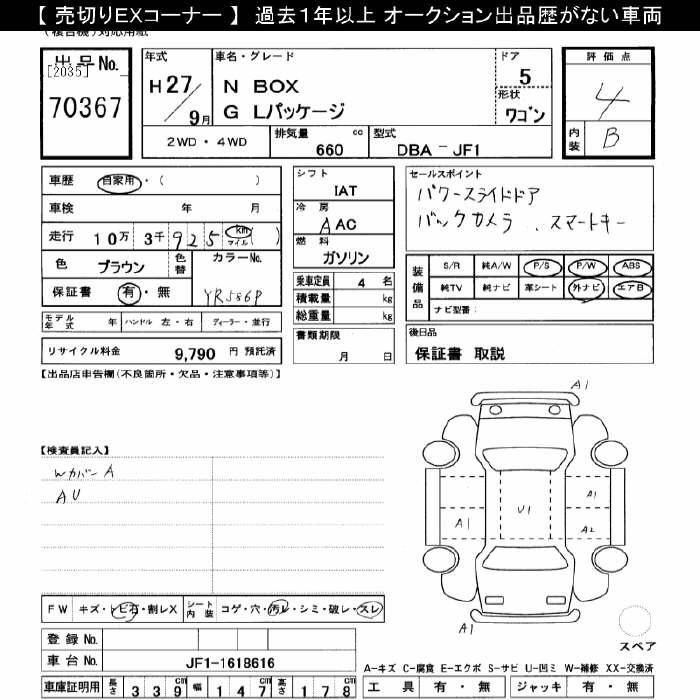 【 売切りEXコーナー 】 過去１年以上 オークション出品歴がない車両
(複合機)対応用紙
出品No.
[2035]
70367
年式
H27/9月
車名・グレード
N BOX
G Lパッケージ
ドア
5
形状
ワゴン
評価点
4
内装
B
2WD・4WD
排気量
660 cc
型式
DBA-JF1
車歴 自家用・( )
車検 年 月
走行 10万 3千 925 km マイル ( )
色 ブラウン 色替 カラーNo.
保証書 有・無 YR586P
モデル年式 年 ハンドル 左・右 ディーラー・並行
リサイクル料金 9,790 円 預託済
シフト
IAT
冷房
AAC
燃料
ガソリン
乗車定員 4 名
積載量 kg
総重量 kg
書類期限
月 日
セールスポイント
パワースライドドア
バックカメラ 、スマートキー
装備品
S/R 純A/W P/S P/W ABS
純TV 純ナビ 革シート 外ナビ エアB
ナビ型番:
後日品
保証書 取説
【出品店申告欄(不良箇所・欠品・注意事項等)】
【検査員記入】
Wカバー A
AU
A1
A1
A1
U1
A2
A1
スペア
FW キズ・トビ石・割レX シート内装 コゲ・穴・汚レ・シミ・破レ・スレ
登録 No.
車台 No. JF1-1618616
車庫証明用 長さ 339cm 幅 147cm 高さ 178cm
A-キズ C-腐食 E-エクボ S-サビ U-凹ミ W-補修 XX-交換済
工具 有・無 ジャッキ 有・無